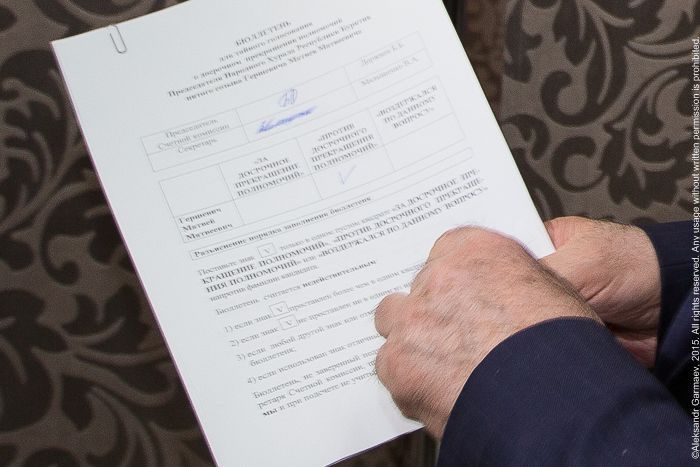 БЮЛЛЕТЕНЬ
для тайного голосования
о досрочном прекращении полномочий
Председателя Народного Хурала Республики Бурятия
пятого созыва Гершевича Матвея Матвеевича
Председатель
Счетной комиссии
Секретарь
Доржиев Б.Б.
Малышенко В.А.
«ЗА
ДОСРОЧНОЕ
ПРЕКРАЩЕНИЕ
ПОЛНОМОЧИЙ»
«ПРОТИВ
ДОСРОЧНОГО
ПРЕКРАЩЕНИЯ
ПОЛНОМОЧИЙ»
«ВОЗДЕРЖАЛСЯ
ПО ДАННОМУ
ВОПРОСУ»
Гершевич
Матвей
Матвеевич
V
Разъяснение порядка заполнения бюллетеня
Поставьте знак V только в одном пустом квадрате «ЗА ДОСРОЧНОЕ ПРЕ-
КРАЩЕНИЕ ПОЛНОМОЧИЙ», «ПРОТИВ ДОСРОЧНОГО ПРЕКРАЩЕ-
НИЯ ПОЛНОМОЧИЙ» или «ВОЗДЕРЖАЛСЯ ПО ДАННОМУ ВОПРОСУ»
напротив фамилии кандидата.
Бюллетень считается недействительным
1) если знак V проставлен более чем в одном квадрате
2) если знак V не проставлен ни в одном
3) если любой другой знак
бюллетень;
4) если использован знак
Бюллетень, не заверенный
ретарь Счетной комиссии,
мы и при подсчете не
©Aleksandr Garmaev, 2015. All rights reserved. Any usage without written permission is prohibited.